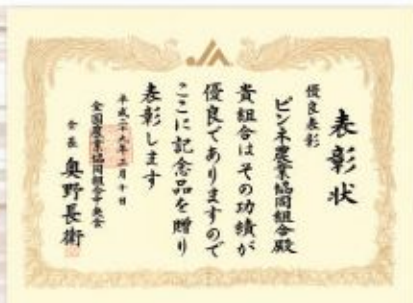 表彰状
優良表彰
ピンネ農業協同組合殿
貴組合はその功績が
優良でありますので
ここに記念品を贈り
表彰します
平成二十九年三月十日
全国農業協同組合中央会
会長 奥野長衛